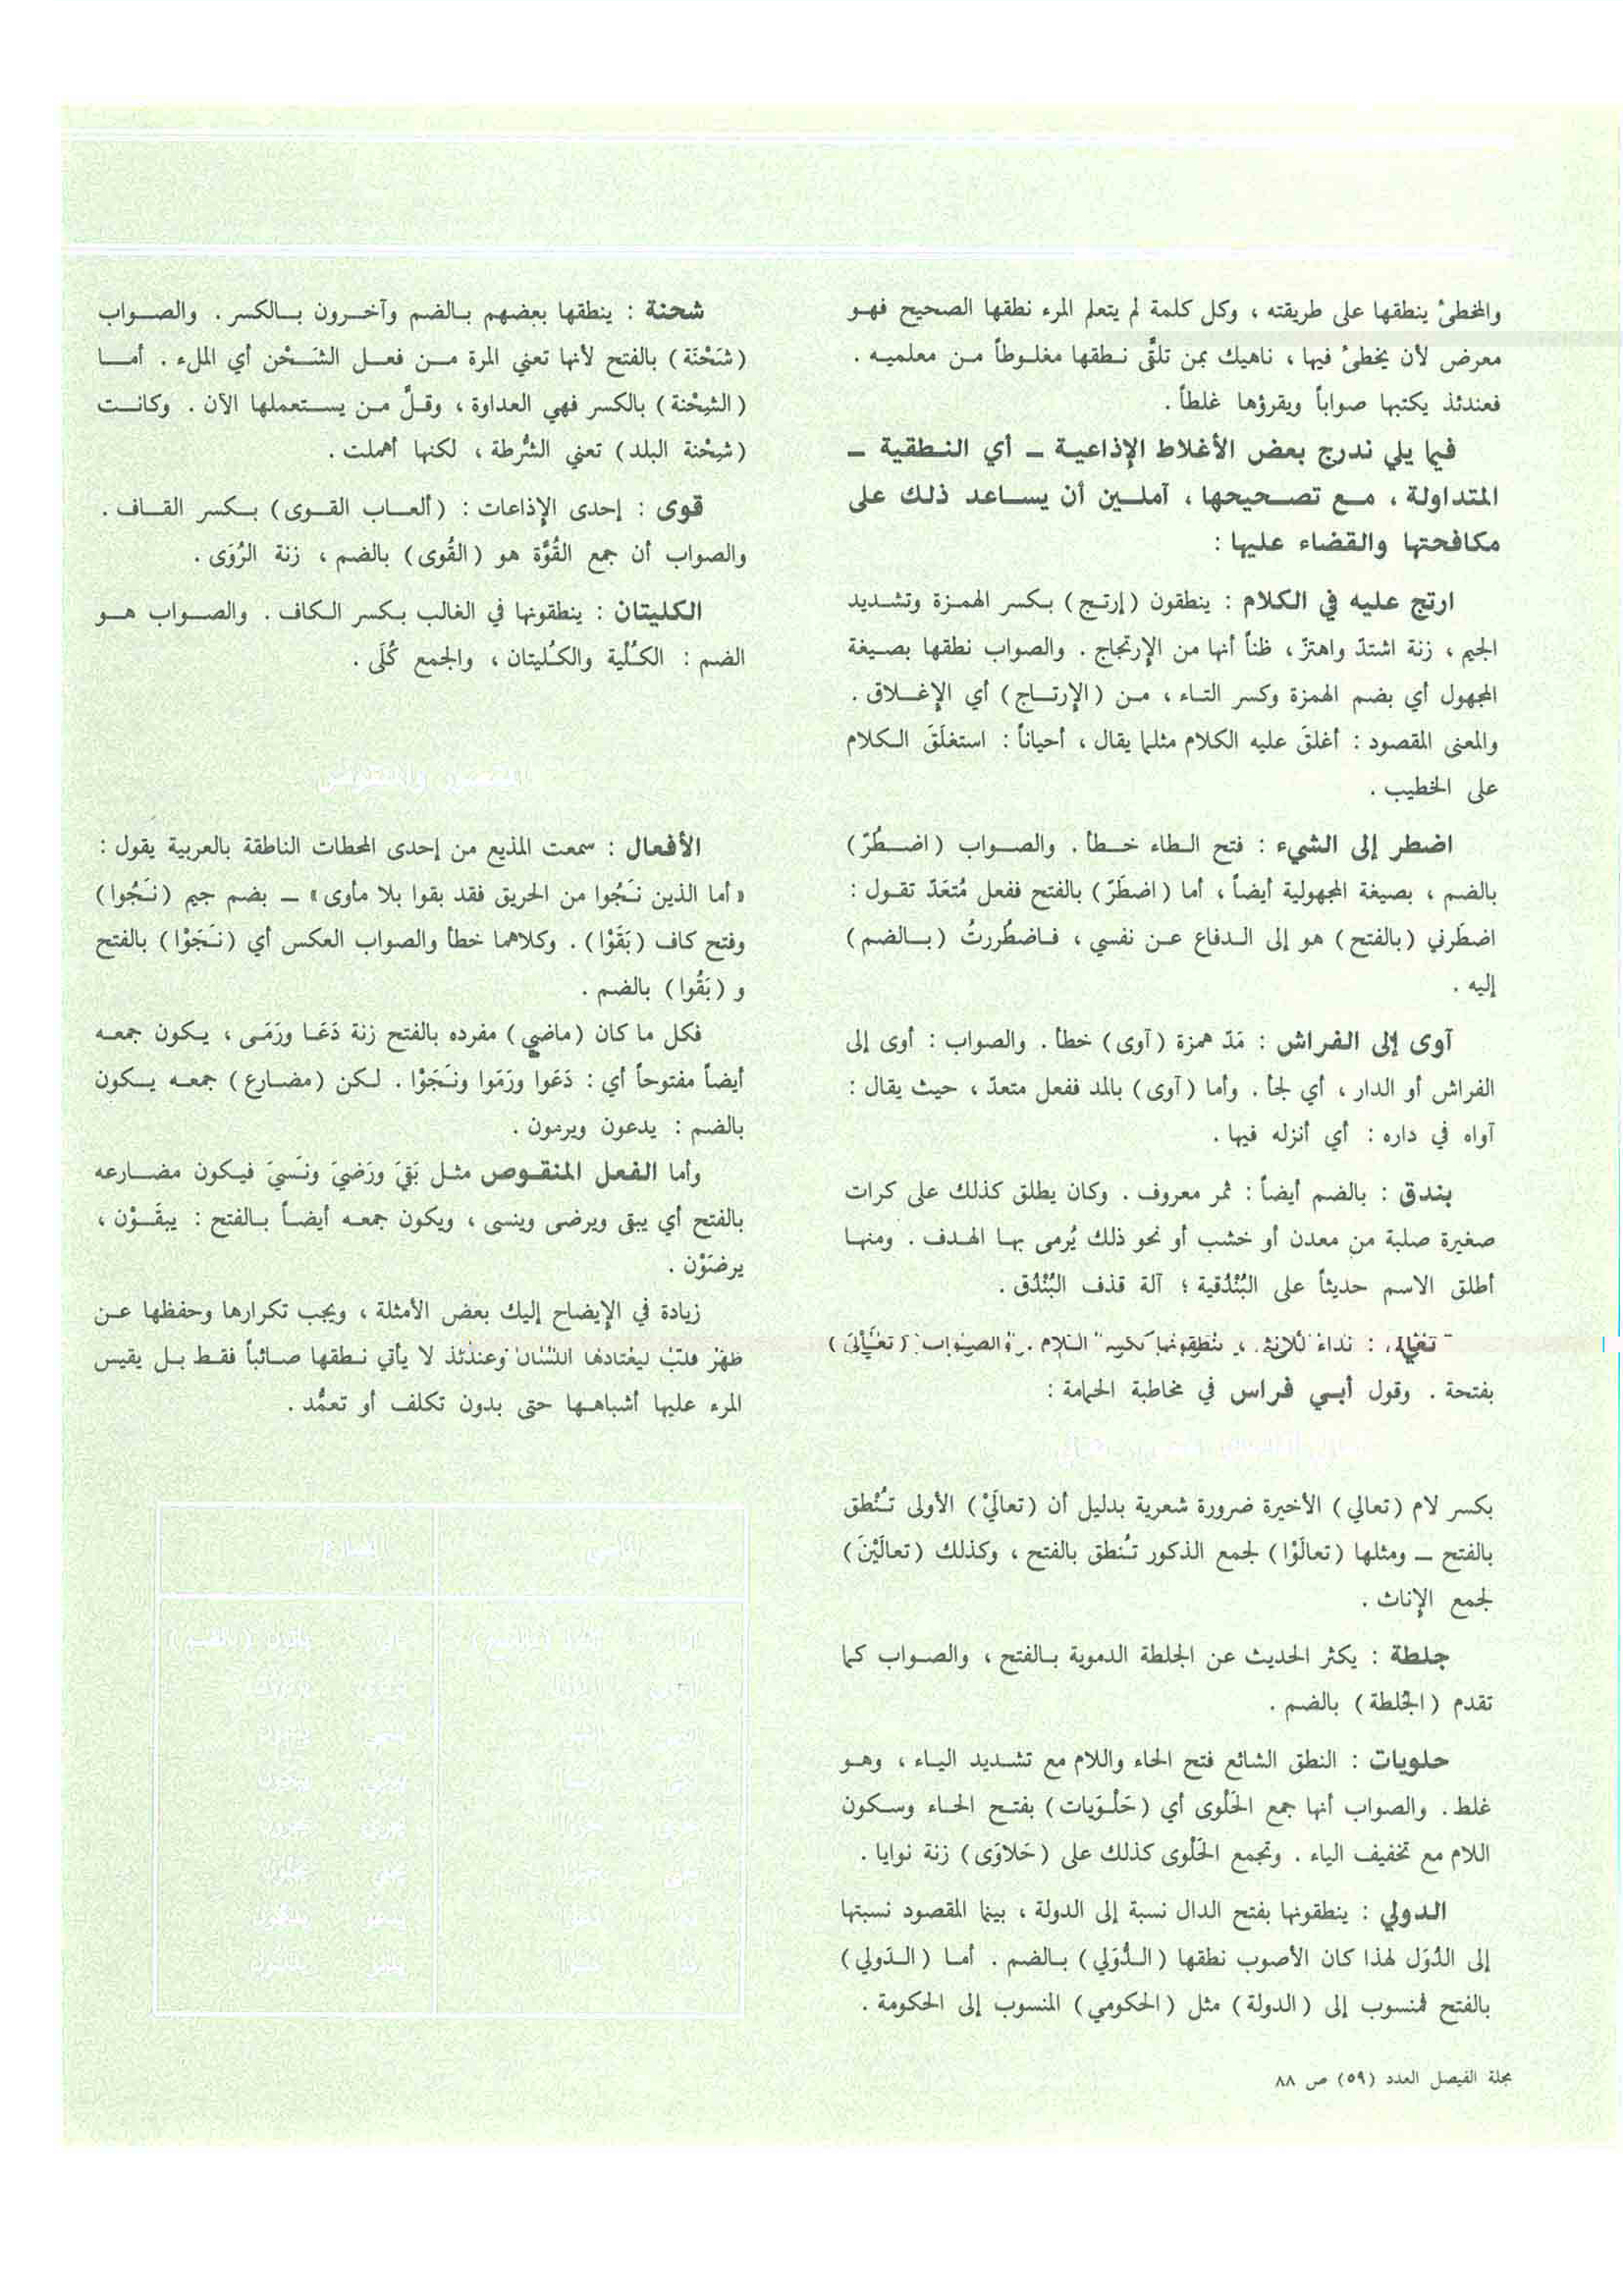 والمخطئ ينطقها على طريقته ، وكل كلمة لم يتعلم المرء نطقها الصحيح فهو
معرض لأن يخطئ فيها ، ناهيك بمن تلقَّى نطقها مغلوطاً من معلميه .
فعندئذ يكتبها صواباً ويقرؤها غلطاً .
فيما يلي ندرج بعض الأغلاط الإذاعية ــ أي النطقية ــ
المتداولة ، مع تصحيحها ، آملين أن يساعد ذلك على
مكافحتها والقضاء عليها :
ارتج عليه في الكلام : ينطقون (إرتج) بكسر الهمزة وتشديد
الجيم ، زنة اشتدّ واهتزّ ، ظناً أنها من الإرتجاج . والصواب نطقها بصيغة
المجهول أي بضم الهمزة وكسر التاء ، من (الإرتاج) أي الإغلاق .
والمعنى المقصود : أغلقَ عليه الكلام مثلما يقال ، أحياناً : استغلَقَ الكلام
على الخطيب .
اضطر إلى الشيء : فتح الطاء خطأ . والصواب (اضطُرّ)
بالضم ، بصيغة المجهولية أيضاً ، أما (اضطَرّ) بالفتح ففعل مُتعَدّ تقول :
اضطَرني (بالفتح) هو إلى الدفاع عن نفسي ، فاضطُررتُ (بالضم)
إليه .
آوى إلى الفراش : مَدّ همزة (آوى) خطأ . والصواب : أوى إلى
الفراش أو الدار ، أي لجأ . وأما (آوى) بالمد ففعل متعدّ ، حيث يقال :
آواه في داره : أي أنزله فيها .
بندق : بالضم أيضاً : ثمر معروف . وكان يطلق كذلك على كرات
صغيرة صلبة من معدن أو خشب أو نحو ذلك يُرمى بها الهدف . ومنها
أطلق الاسم حديثاً على البُنْدُقية ؛ آلة قذف البُنْدُق .
تعالي : نداء للأنثى ، ينطقونها بكسر اللام . والصواب (تعَالَي)
بفتحة . وقول أبي فراس في مخاطبة الحمامة :
بكسر لام (تعالي) الأخيرة ضرورة شعرية بدليل أن (تعالَيْ) الأولى تُنْطق
بالفتح ــ ومثلها (تعالَوْا) لجمع الذكور تُنطق بالفتح ، وكذلك (تعالَيْنَ)
لجمع الإناث .
جلطة : يكثر الحديث عن الجلطة الدموية بالفتح ، والصواب كما
تقدم (الجُلطة) بالضم .
حلويات : النطق الشائع فتح الحاء واللام مع تشديد الياء ، وهو
غلط . والصواب أنها جمع الحَلْوى أي (حَلْوَيات) بفتح الحاء وسكون
اللام مع تخفيف الياء . وتجمع الحَلْوى كذلك على (حَلاوَى) زنة نوايا .
الدولي : ينطقونها بفتح الدال نسبة إلى الدولة ، بينما المقصود نسبتها
إلى الدُوَل لهذا كان الأصوب نطقها (الدُّوَلي) بالضم . أما (الدَولي)
بالفتح فمنسوب إلى (الدولة) مثل (الحكومي) المنسوب إلى الحكومة .
شحنة : ينطقها بعضهم بالضم وآخرون بالكسر . والصواب
(شَحْنَة) بالفتح لأنها تعني المرة من فعل الشَحْن أي الملء . أما
(الشِحْنة) بالكسر فهي العداوة ، وقلَّ من يستعملها الآن . وكانت
(شِحْنة البلد) تعني الشُرطة ، لكنها أهملت .
قوى : إحدى الإذاعات : (ألعاب القوى) بكسر القاف .
والصواب أن جمع القُوَّة هو (القُوى) بالضم ، زنة الرُوَى .
الكليتان : ينطقونها في الغالب بكسر الكاف . والصواب هو
الضم : الكُلْية والكُليتان ، والجمع كُلَى .
المقصور والمنقوص
الأفعال : سمعت المذيع من إحدى المحطات الناطقة بالعربية يقول :
« أما الذين نَجُوا من الحريق فقد بقوا بلا مأوى » ــ بضم جيم (نَجُوا)
وفتح كاف (بَقَوْا) . وكلاهما خطأ والصواب العكس أي (نَجَوْا) بالفتح
و (بَقُوا) بالضم .
فكل ما كان (ماضي) مفرده بالفتح زنة دَعَا ورَمَى ، يكون جمعه
أيضاً مفتوحاً أي : دَعَوا ورَمَوا ونَجَوْا . لكن (مضارع) جمعه يكون
بالضم : يدعون ويرمون .
وأما الفعل المنقوص مثل بَقيَ ورَضيَ ونَسيَ فيكون مضارعه
بالفتح أي يبقى ويرضى وينسى ، ويكون جمعه أيضاً بالفتح : يبقَوْن ،
يرضَوْن .
زيادة في الإيضاح إليك بعض الأمثلة ، ويجب تكرارها وحفظها عن
ظهر قلب ليعتادها اللسان وعندئذ لا يأتي نطقها صائباً فقط بل يقيس
المرء عليها أشباهها حتى بدون تكلف أو تعمُّد .
مجلة الفيصل العدد (٥٩) ص ٨٨